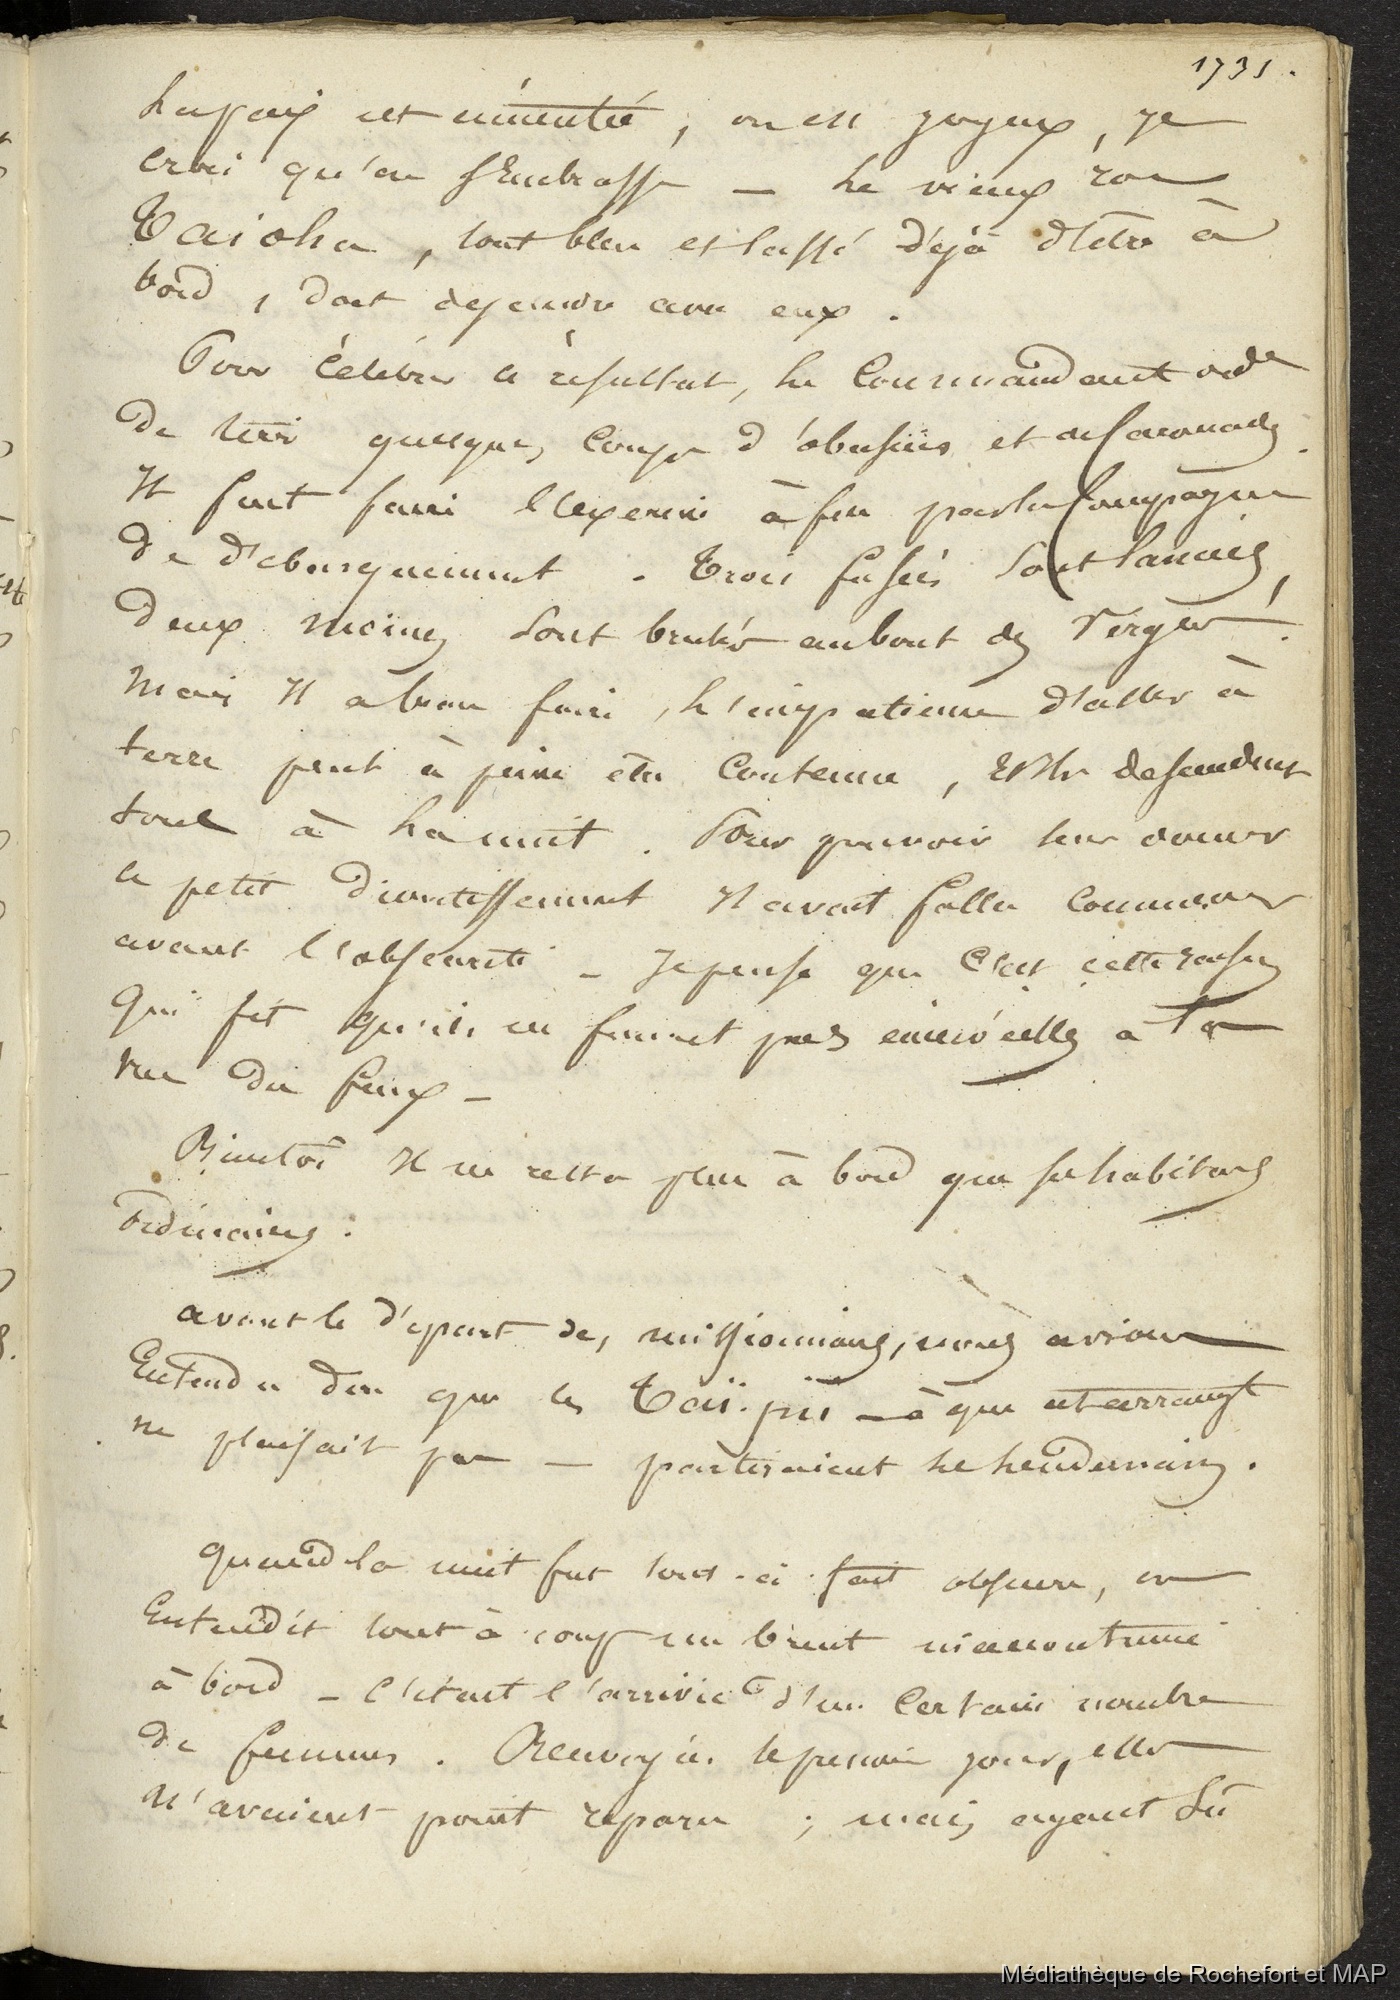 1731.
La paix est cimentée, on est joyeux, je
crois qu'on s'embrasse — Le vieux roi
Taioha, tout bleu et lassé déjà d'être à
bord, doit dejeuner avec eux.
Pour célébrer ce résultat, le Commandant orde
de tirer quelques coups d'obusiers et de Caronades.
Il fait faire l'exercice à feu par la Compagnie
de débarquement. Trois fusées sont lancées,
Deux moines sont brulés au bout des vergues.
Mais Il a beau faire, l'impatience d'aller à
terre peut à peine être contenue, Elles descendent
tous à la nuit. Pour pouvoir leur donner
ce petit divertissement Il avait fallu commencer
avant l'obscurité — Je pense que c'est cette raison
qui fit qu'ils ne furent pas émerveillés à la
vue du feux —
Bientôt Il ne resta plus à bord que ses habitans
ordinaires.
avant le départ des missionnaires, nous avions
Entendu dire que les Taïi-pii — à qui cet arrangt
ne plaisait pas — partiraient le lendemain.
quand la nuit fut tout-à-fait obscure, on
Entendit tout à coup un bruit inaccoutumé
à bord — c'était l'arrivée d'un certain nombre
de femmes. Renvoyées le premier jour, elles
n'avaient point reparu ; mais ayant su
Médiathèque de Rochefort et MAP